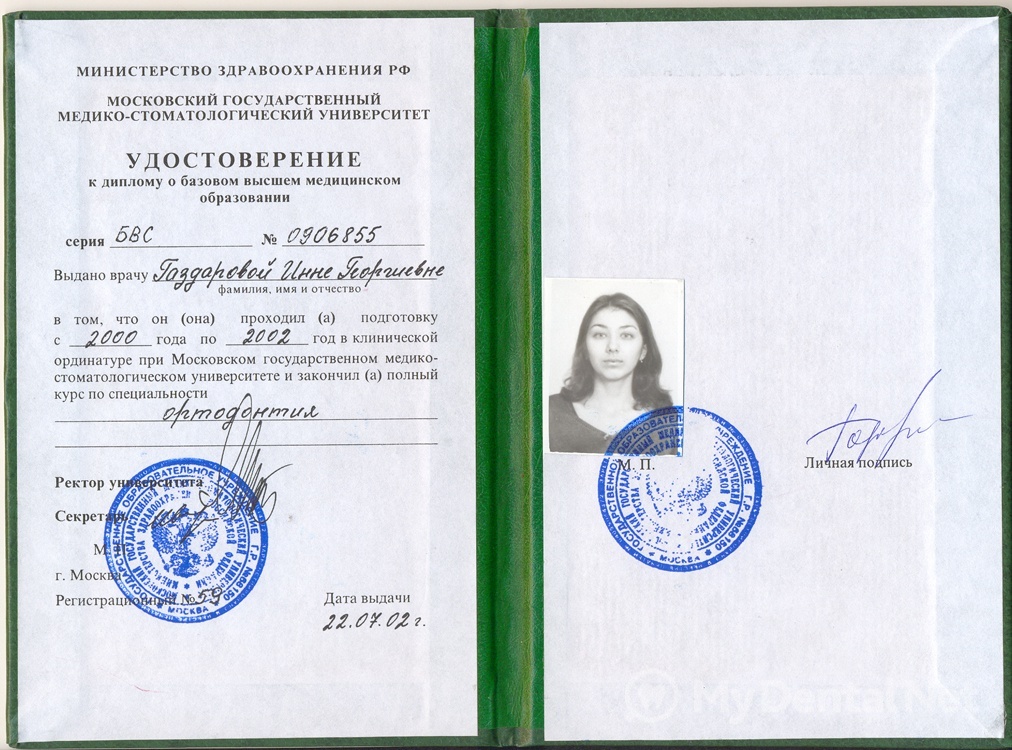 МИНИСТЕРСТВО ЗДРАВООХРАНЕНИЯ РФ
МОСКОВСКИЙ ГОСУДАРСТВЕННЫЙ
МЕДИКО-СТОМАТОЛОГИЧЕСКИЙ УНИВЕРСИТЕТ
УДОСТОВЕРЕНИЕ
к диплому о базовом высшем медицинском
образовании
серия БВС № 0906855
Выдано врачу Газдаровой Инне Георгиевне
фамилия, имя и отчество
в том, что он (она) проходил (а) подготовку
с 2000 года по 2002 год в клинической
ординатуре при Московском государственном медико-
стоматологическом университете и закончил (а) полный
курс по специальности
ортодонтия
Ректор университета
Секретарь
М.
г. Москва
Регистрационный № 59
Дата выдачи
22.07.02 г.
М. П.
Личная подпись
MyDental.Net